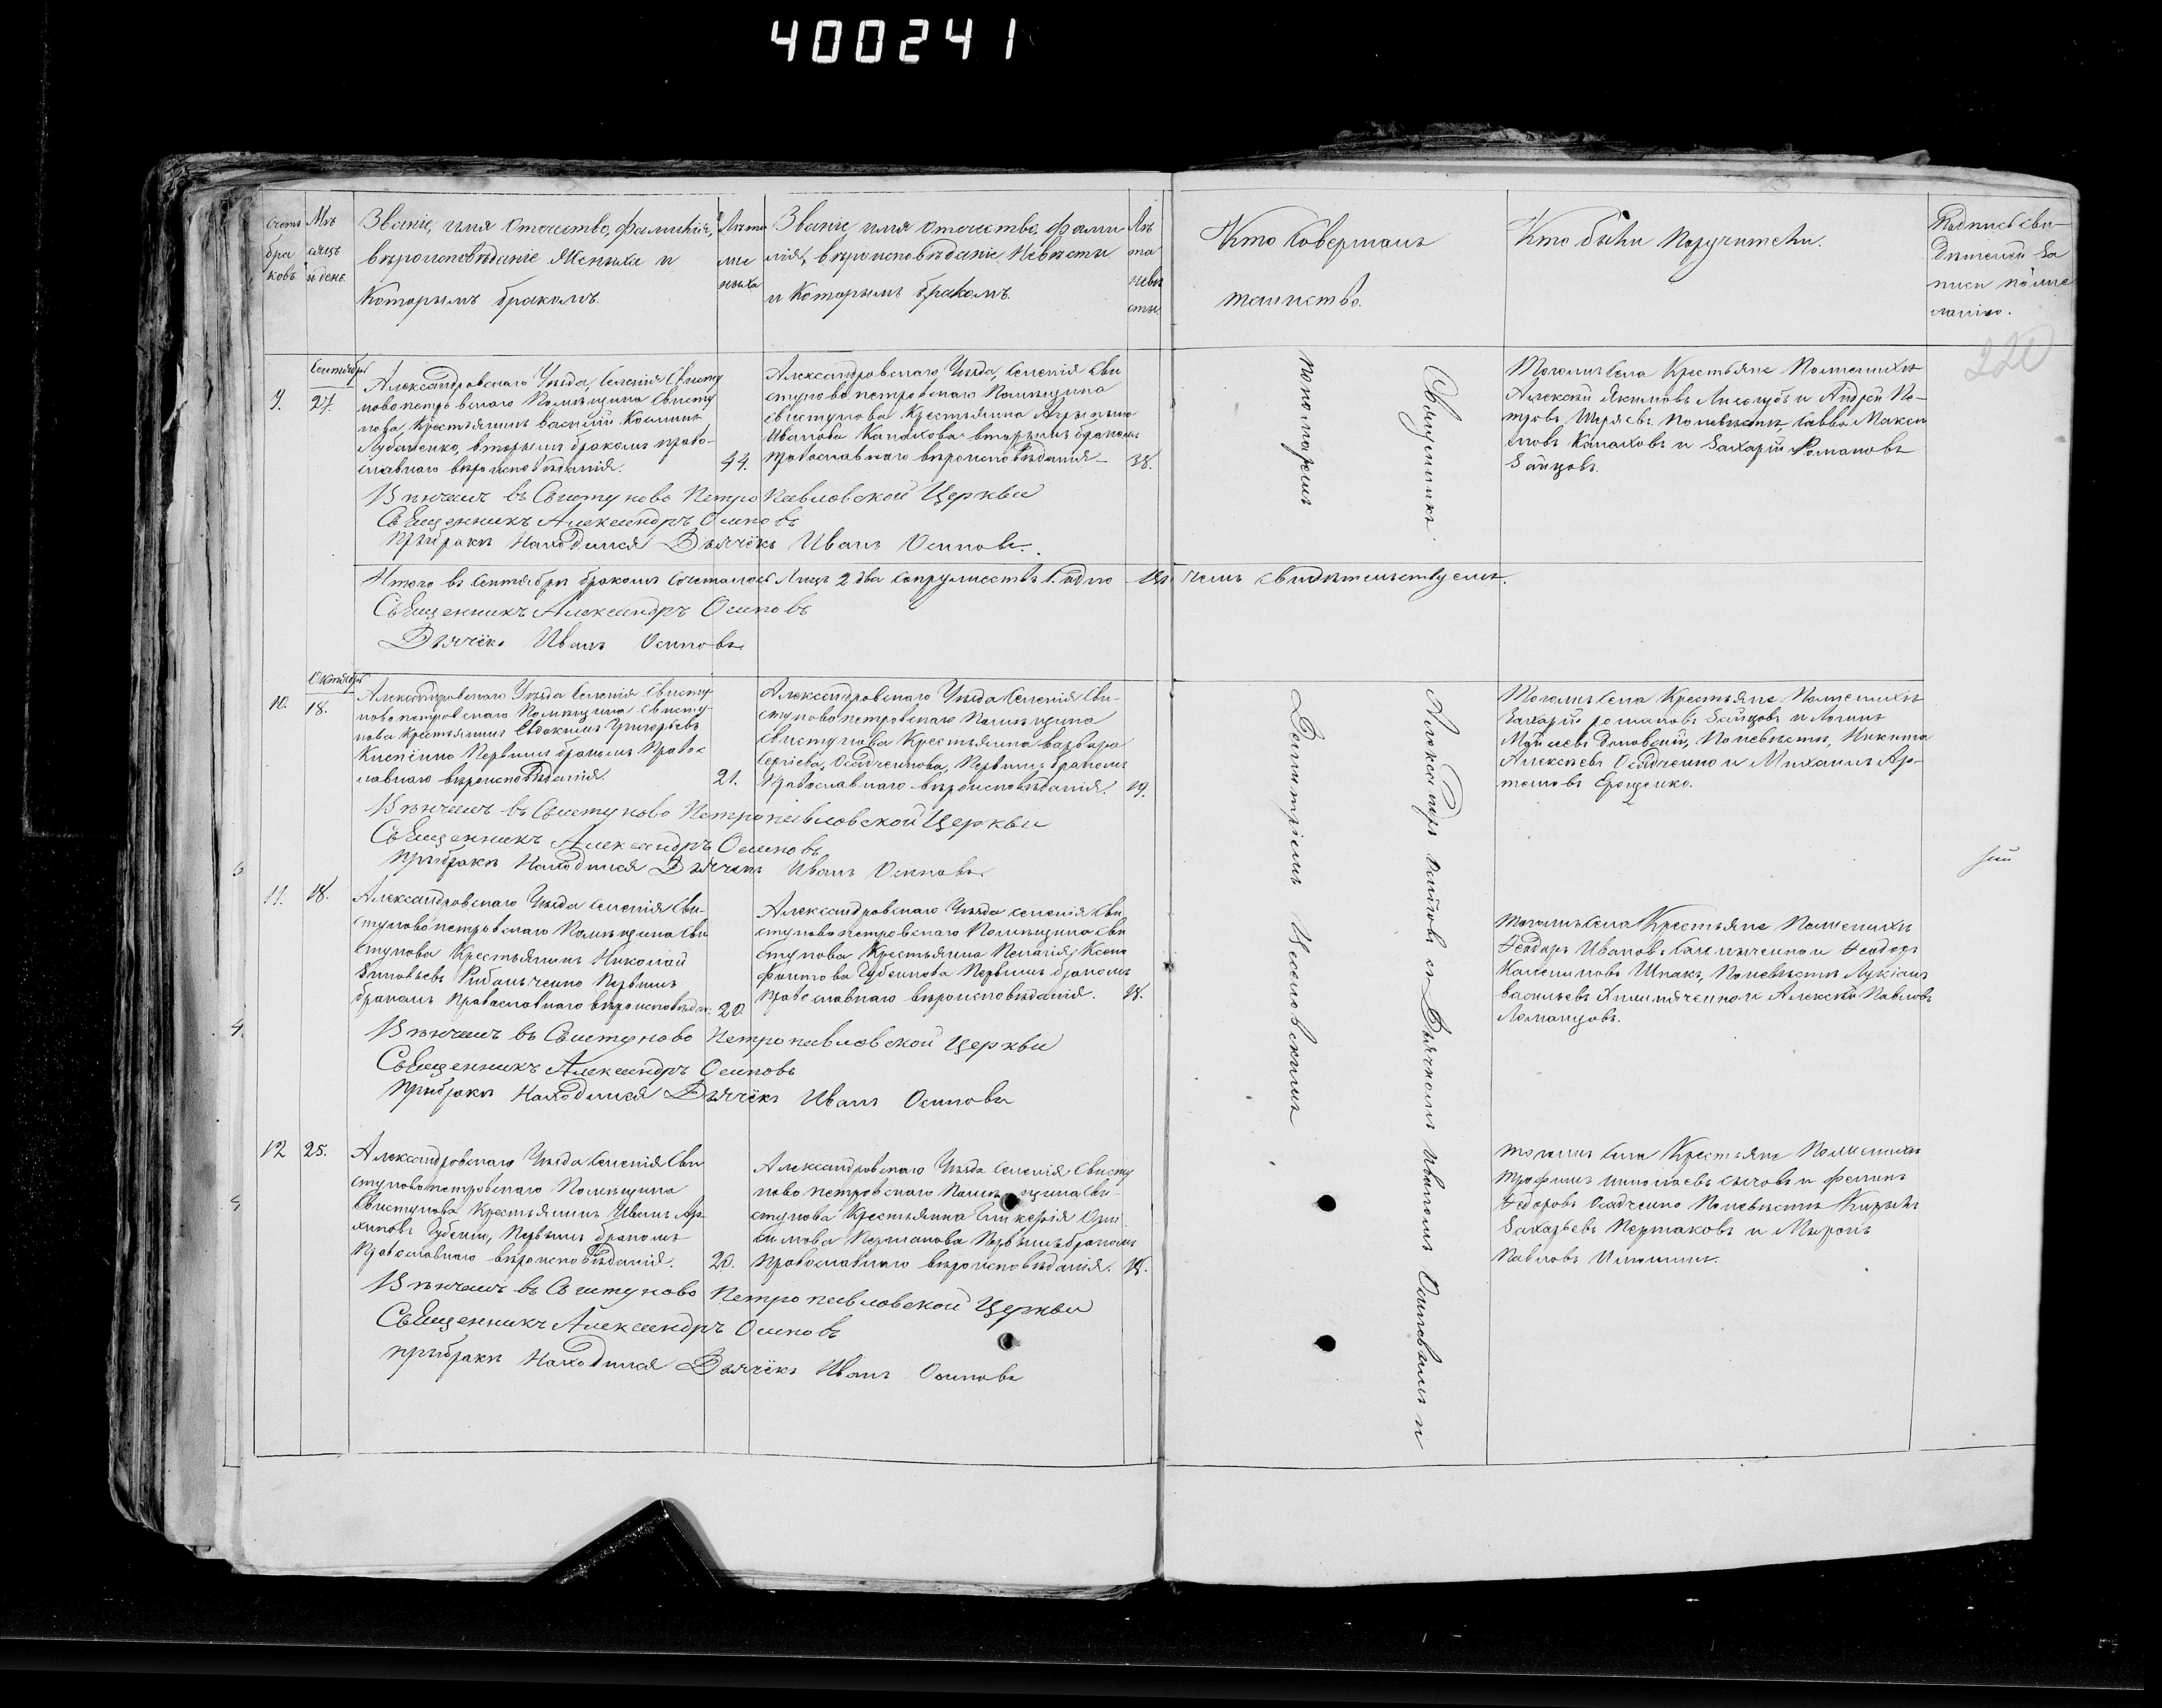 400241
Счетъ браковъ
Мѣсяцъ и день
Званіе, имя отечество, фамилія,
вѣроисповѣданіе Жениха и
Которымъ бракомъ.
Лѣта жениха
Званіе, имя отечество, фами
лія, вѣроисповѣданіе Невѣсты
и Которымъ бракомъ.
Лѣта невѣсты
Кто Совершалъ
таинство.
Кто были поручители.
Подпись сви-
дѣтелей за
писи по же
ланію.
220
Сентябрь
9.
27.
Александровскаго Уѣзда, Селенія Свисту
ново петровскаго Помѣщика Свисту
нова, Крестьянинъ Василій Косминъ
вторымъ бракомъ право-
славнаго вѣроисповѣданія.
44.
Александровскаго Уѣзда, Селенія Сви
стуново петровскаго Помѣщика
Свистунова Крестьянка
Иванова вторымъ бракомъ
православнаго вѣроисповѣданія
38.
Тогожъ Села Крестьяне По женихѣ
Алексѣй Акимовъ и Андрей Пе-
тровъ По невѣстѣ, Савва Макси
мовъ и Захарій Романовъ
Зайцовъ.
Вѣнчалъ въ Свистуново Петро Павловской Церкви
Священникъ Александръ Осиповъ
При бракѣ находился Дьячекъ Иванъ Осиповъ.
Итого въ Сентябрѣ бракомъ сочеталось Лицъ 2 два супружествъ 1. одно чемъ свидѣтельствуемъ.
Священникъ Александръ Осиповъ
Дьячекъ Иванъ Осиповъ
Октябрь
10.
18.
Александровскаго Уѣзда Селенія Свисту
ново петровскаго Помѣщика Свисту-
нова Крестьянинъ Евдокимъ Григорьевъ
Первымъ бракомъ Правос
лавнаго вѣроисповѣданія.
21.
Александровскаго Уѣзда Селенія Сви-
стуново петровскаго Помѣщика
Свистунова Крестьянка Варвара
Сергіева, Осадченкова, Первымъ бракомъ
Православнаго вѣроисповѣданія.
19.
Тогожъ Села Крестьяне По женихѣ
Захарій Романовъ Зайцовъ и Логинъ
По невѣстѣ, Никита
Алексѣевъ Осадченко и Михаилъ Ар-
темовъ Ерещенко.
Вѣнчалъ въ Свистуново Петропавловской Церкви
Священникъ Александръ Осиповъ
При бракѣ Находился Дьячекъ Иванъ Осиповъ
11.
18.
Александровскаго Уѣзда Селенія Сви-
стуново петровскаго Помѣщика Сви
стунова Крестьянинъ Николай
Зиновьевъ Рибальченко Первымъ
бракомъ Православнаго вѣроисповѣдан:
20
Александровскаго Уѣзда селенія Сви
стуново петровскаго Помѣщика Сви
стунова Крестьянка Пелагія Ксено
фонтова Губенкова Первымъ бракомъ
Православнаго вѣроисповѣданія.
18.
Тогожъ Села Крестьяне По женихѣ
Феодоръ Ивановъ и Феодоръ
Шпакъ, По невѣстѣ Лукіанъ
Васильевъ и Алексѣй Павловъ
Ломанцовъ.
Вѣнчалъ въ Свистуново Петропавловской Церкви
Священникъ Александръ Осиповъ
При бракѣ Находился Дьячекъ Иванъ Осиповъ
12
25.
Александровскаго Уѣзда Селенія Сви
стуново петровскаго Помѣщика
Свистунова Крестьянинъ Иванъ Ар-
хиповъ Губенко, Первымъ бракомъ
Православнаго вѣроисповѣданія.
20.
Александровскаго Уѣзда Селенія Свисту
ново петровскаго Помѣщика Сви-
стунова Крестьянка Гликерія Они
симова Первымъ бракомъ
Православнаго вѣроисповѣданія.
18.
Тогожъ Села Крестьяне По женихѣ
Трофимъ и Филипъ
Федоровъ Осадченко По невѣстѣ Кирилъ
Захарьевъ и Миронъ
Павловъ
Вѣнчалъ въ Свистуново Петропавловской Церкви
Священникъ Александръ Осиповъ
При бракѣ Находился Дьячекъ Иванъ Осиповъ
Священникъ Александръ Осиповъ съ Дьячкомъ Иваномъ Осиповымъ и
пономаремъ Димитріемъ Веселовскимъ